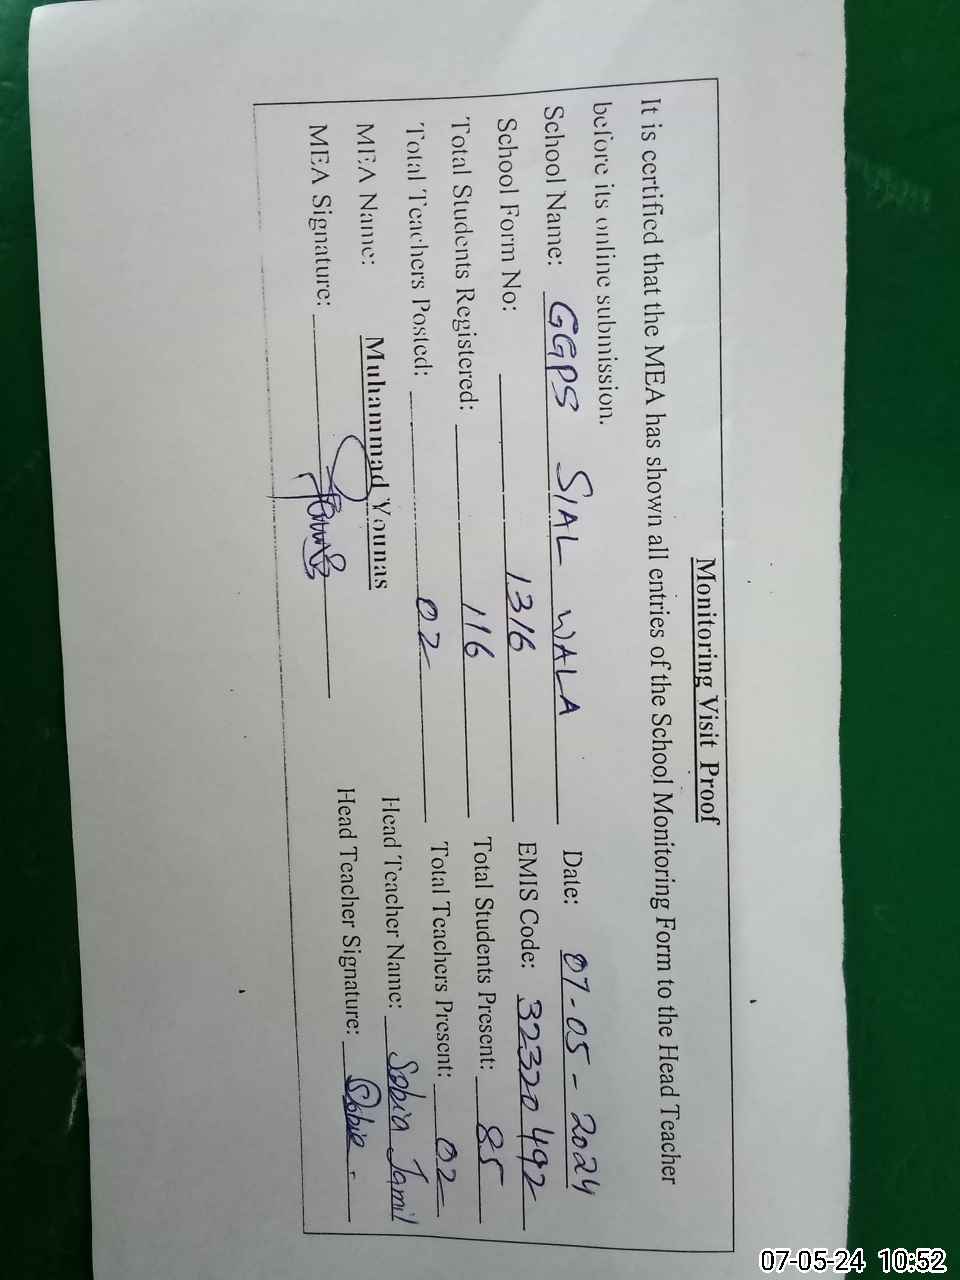 Monitoring Visit Proof
It is certified that the MEA has shown all entries of the School Monitoring Form to the Head Teacher
before its online submission.
School Name: GGPS SIAL WALA Date: 07-05-2024
School Form No: 1316 EMIS Code: 32320492
Total Students Registered: 116 Total Students Present: 85
Total Teachers Posted: 02 Total Teachers Present: 02
MEA Name: Muhammad Younas Head Teacher Name: Sobia Jamil
MEA Signature: Head Teacher Signature: Sobia.
07-05-24 10:52